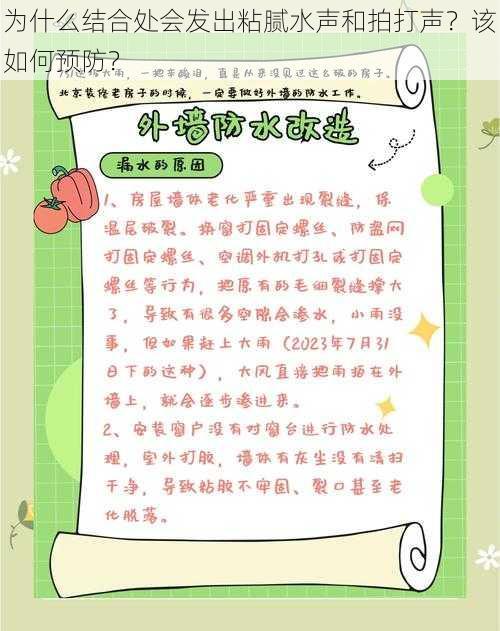 为什么结合处会发出粘腻水声和拍打声？该
如何预防？
北京装修老房子的时候，一定要做好外墙的防水工作。
外墙防水改造
漏水的原因
1、房屋墙体老化严重出现裂缝，保
温层破裂。换窗打固定螺丝、防盗网
打固定螺丝、空调外机打孔或打固定
螺丝等行为，把原有的毛细裂缝撑大
了，导致有很多空隙会渗水，小雨没
事，但如果赶上大雨（2023年7月31
日下的这种），大风直接把雨拍在外
墙上，就会逐步渗进来。
2、安装窗户没有对窗台进行防水处
理，室外打胶，墙体有灰尘没有清扫
干净，导致粘胶不牢固、裂口甚至老
化脱落。